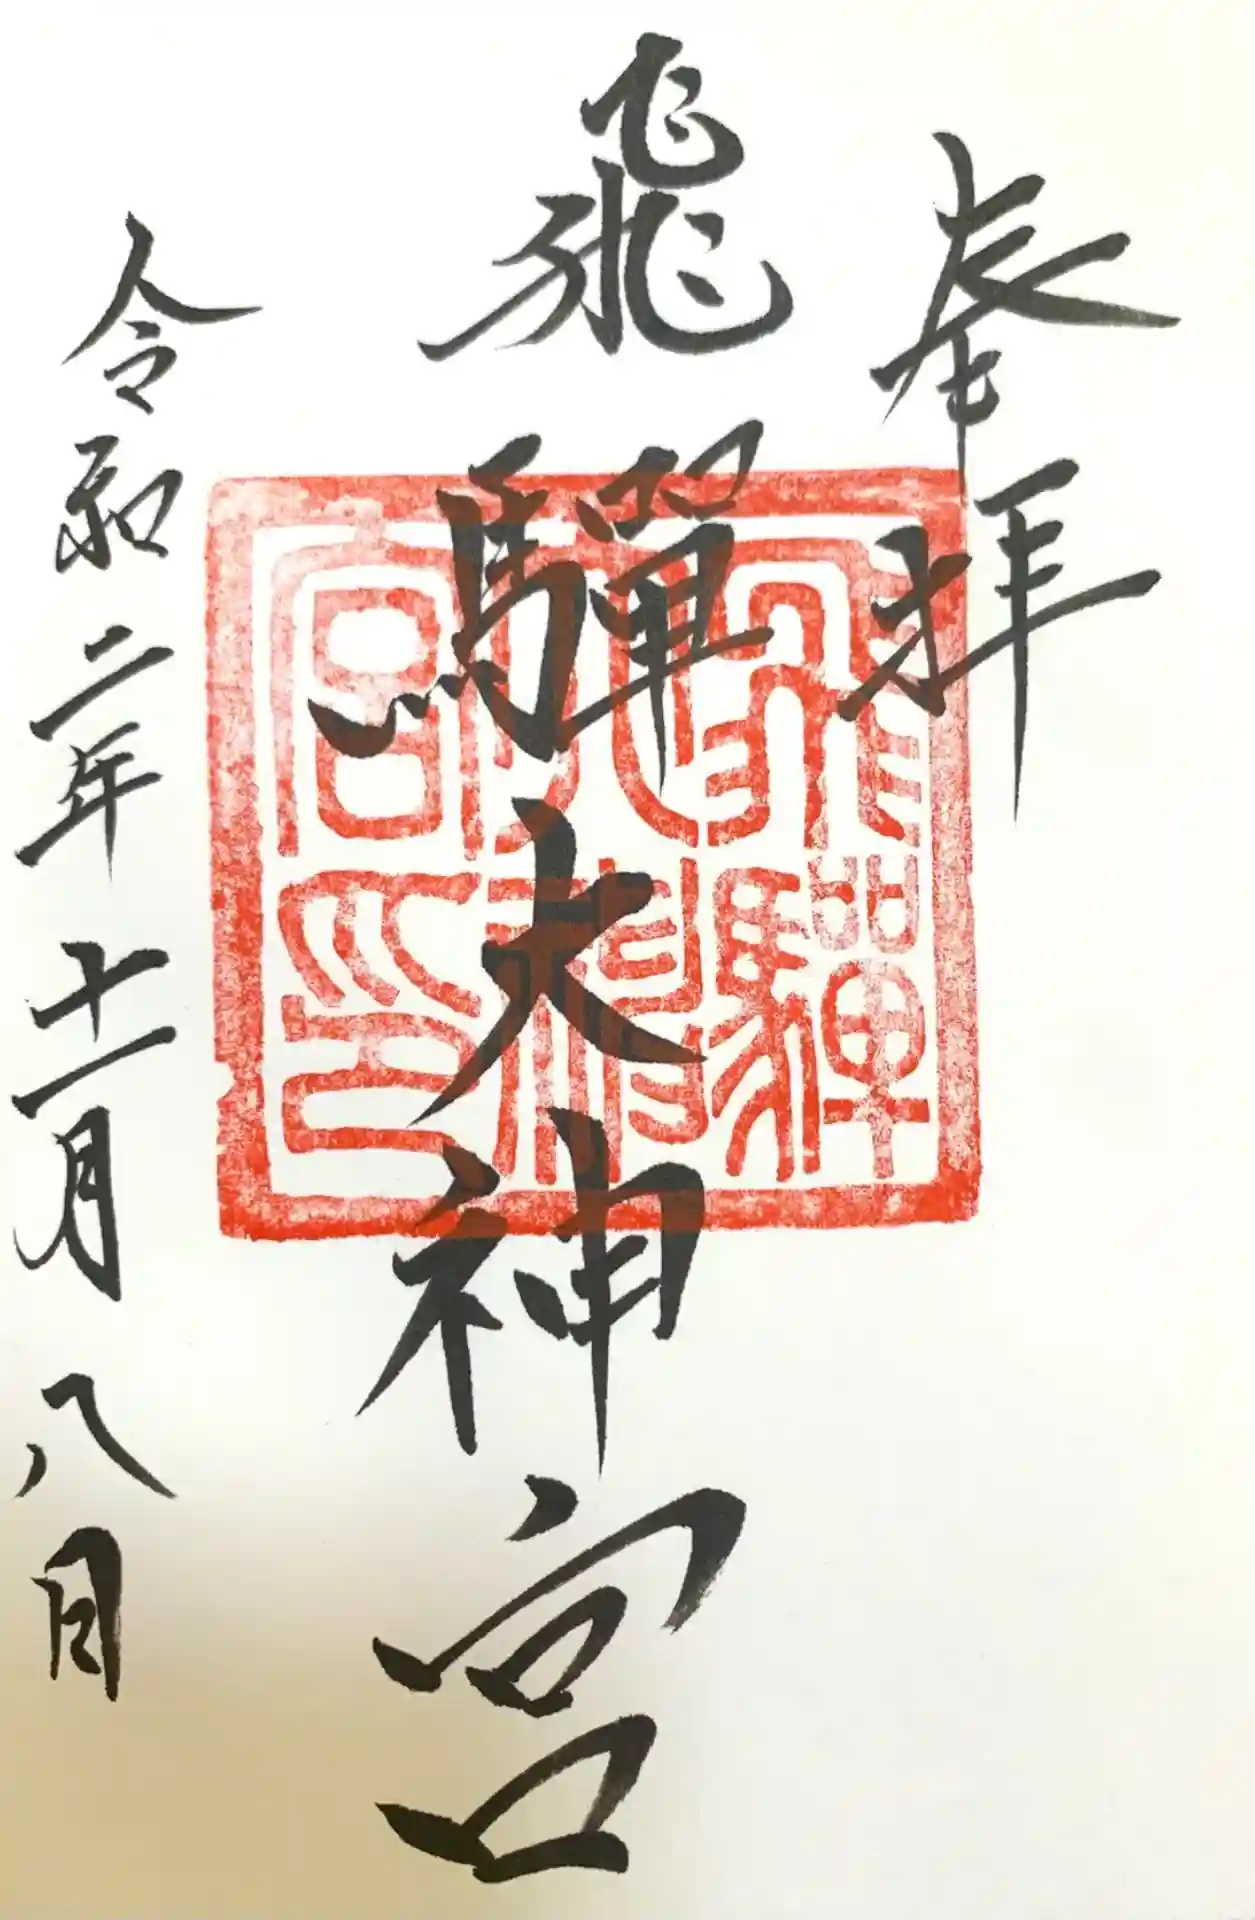 奉拝
飛驒大神宮
飛驒大神宮印
令和二年十一月八日